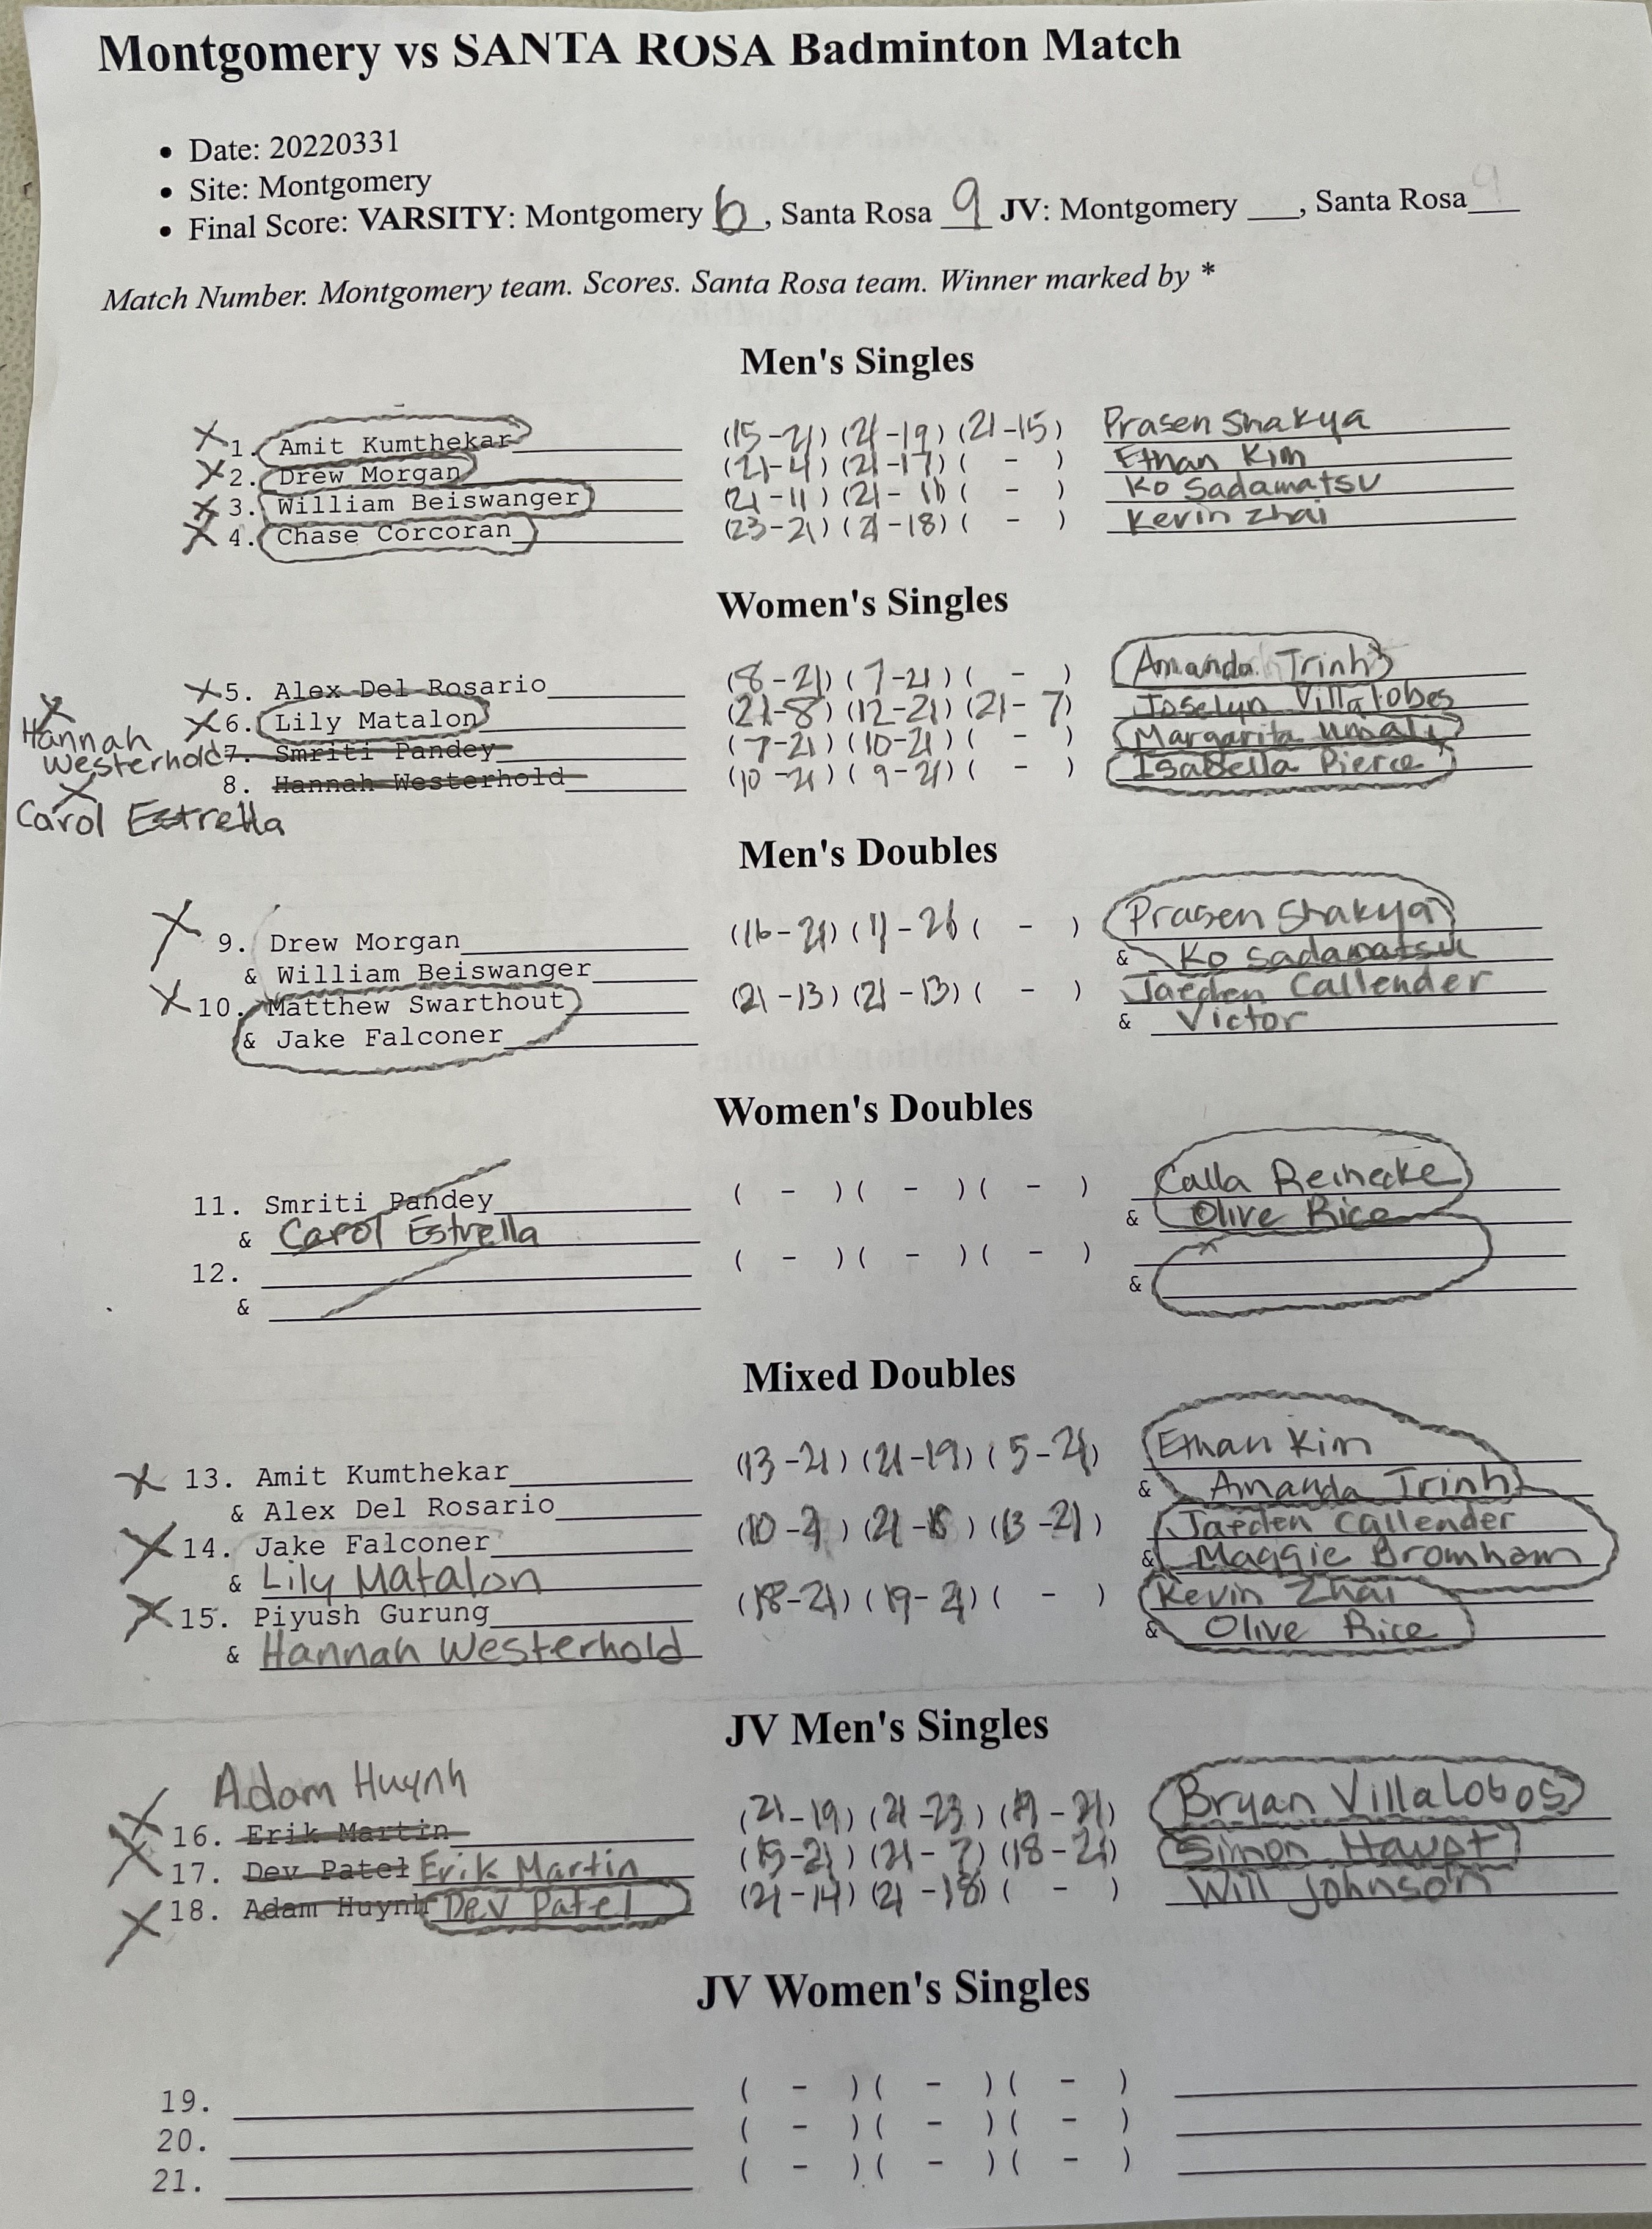 Montgomery vs SANTA ROSA Badminton Match
• Date: 20220331
• Site: Montgomery
• Final Score: VARSITY: Montgomery 6, Santa Rosa 9 JV: Montgomery ___, Santa Rosa ___
Match Number. Montgomery team. Scores. Santa Rosa team. Winner marked by *
Men's Singles
X 1. Amit Kumthekar (15-21) (21-19) (21-15) Prasen Shakya
X 2. Drew Morgan (21-4) (21-17) ( - ) Ethan Kim
X 3. William Beiswanger (21-11) (21-11) ( - ) Ko Sadamatsu
X 4. Chase Corcoran (23-21) (21-18) ( - ) Kevin Zhai
Women's Singles
X 5. Alex Del Rosario (8-21) (7-21) ( - ) Amanda Trinh
X 6. Lily Matalon (21-8) (12-21) (21-7) Joselyn Villalobos
X Hannah Westerhold 7. Smriti Pandey (7-21) (10-21) ( - ) Margarita Umali
8. Hannah Westerhold (10-21) (9-21) ( - ) Isabella Pierce
X Carol Estrella
Men's Doubles
X 9. Drew Morgan (16-21) (11-21) ( - ) Prasen Shakya
& William Beiswanger & Ko Sadamatsu
X 10. Matthew Swarthout (21-13) (21-13) ( - ) Jaeden Callender
& Jake Falconer & Victor
Women's Doubles
11. Smriti Pandey ( - ) ( - ) ( - ) Calla Reinecke
& Carol Estrella & Olive Rice
12. ( - ) ( - ) ( - )
& &
Mixed Doubles
X 13. Amit Kumthekar (13-21) (21-19) (5-21) Ethan Kim
& Alex Del Rosario & Amanda Trinh
X 14. Jake Falconer (10-21) (21-18) (13-21) Jaeden Callender
& Lily Matalon & Maggie Bromham
X 15. Piyush Gurung (18-21) (19-21) ( - ) Kevin Zhai
& Hannah Westerhold & Olive Rice
JV Men's Singles
Adam Huynh
X 16. Erik Martin (21-19) (21-23) (19-21) Bryan Villalobos
X 17. Dev Patel Erik Martin (15-21) (21-7) (18-21) Simon Haupt
X 18. Adam Huynh Dev Patel (21-14) (21-18) ( - ) Will Johnson
JV Women's Singles
19. ( - ) ( - ) ( - )
20. ( - ) ( - ) ( - )
21. ( - ) ( - ) ( - )